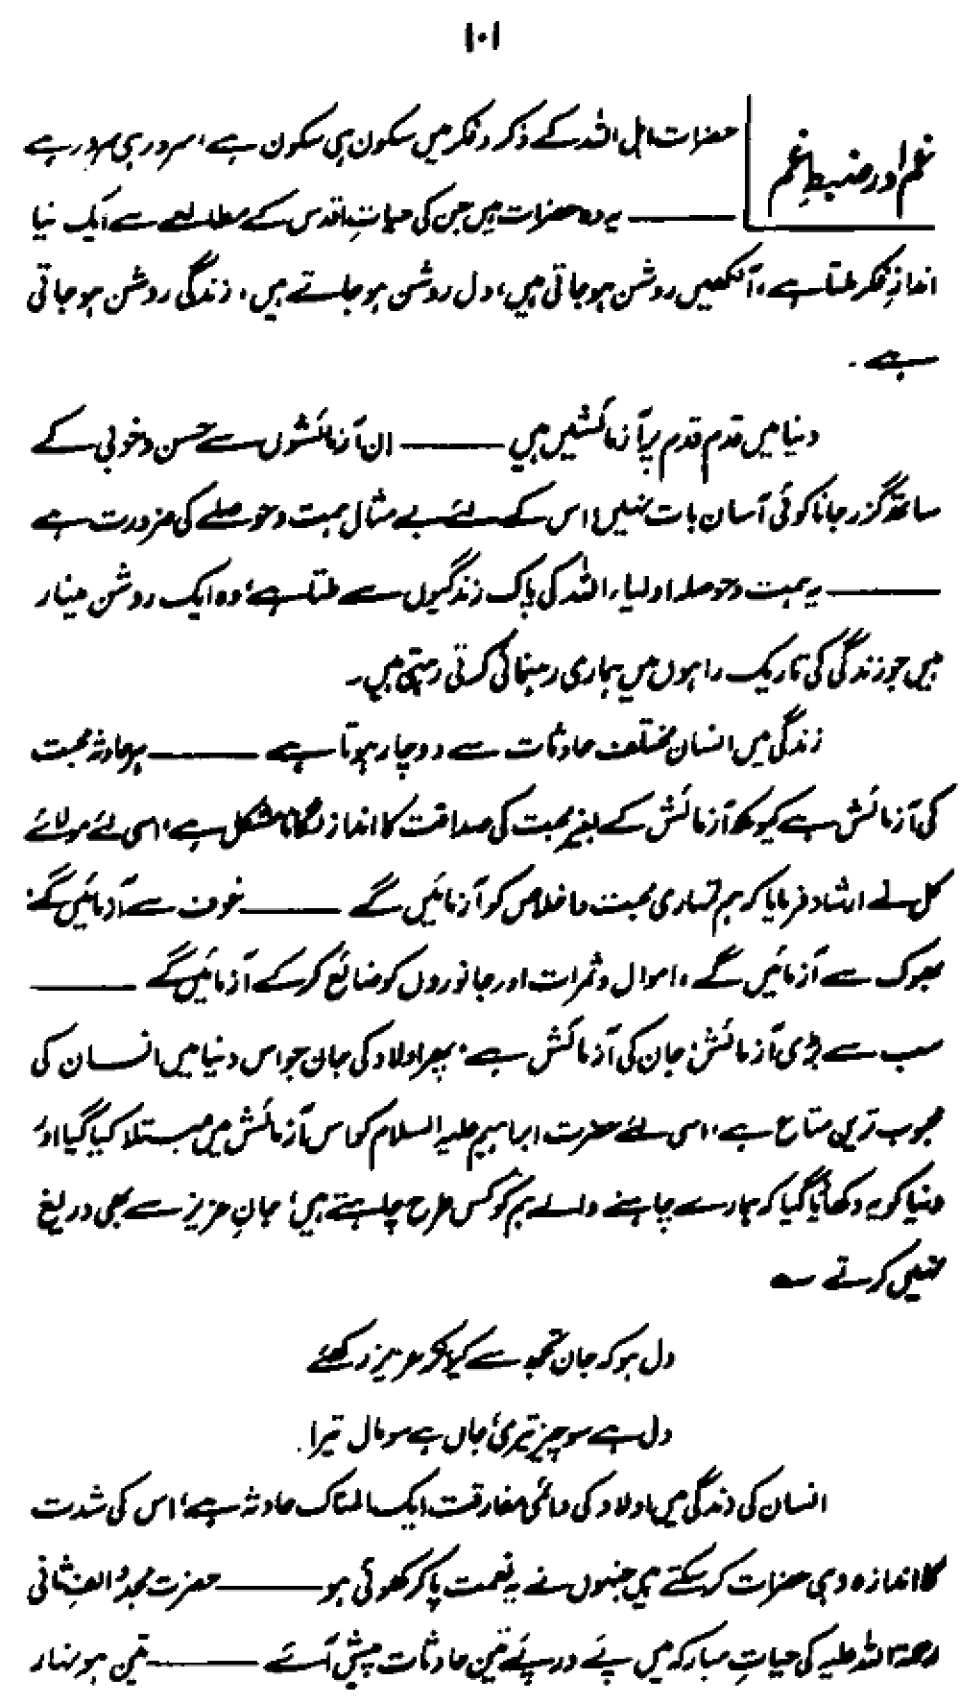 ۱۰۱
غم اور ضبطِ غم
حضرات اہل اللہ کے ذکر و فکر میں سکون ہی سکون ہے، سرور ہی سرور ہے
——— یہ وہ حضرات ہیں جن کی حیاتِ اقدس کے مطالعے سے ایک نیا
اندازِ فکر ملتا ہے، آنکھیں روشن ہو جاتی ہیں، دل روشن ہو جاتے ہیں، زندگی روشن ہو جاتی
ہے۔
دنیا میں قدم قدم پر آزمائشیں ہیں ——— ان آزمائشوں سے حسن و خوبی کے
ساتھ گزر جانا کوئی آسان بات نہیں، اس کے لئے بے مثال ہمت و حوصلے کی ضرورت ہے
——— یہ ہمت و حوصلہ اولیاء اللہ کی پاک زندگیوں سے ملتا ہے، وہ ایک روشن مینار
ہیں جو زندگی کی تاریک راہوں میں ہماری رہنمائی کرتی رہتی ہیں۔
زندگی میں انسان مختلف حادثات سے دوچار ہوتا ہے ——— ہر حادثہ محبت
کی آزمائش ہے کیونکہ آزمائش کے بغیر محبت کی صداقت کا اندازہ لگانا مشکل ہے، اسی لئے مولائے
کل نے ارشاد فرمایا کہ ہم تمہاری محبت و اخلاص کو آزمائیں گے ——— خوف سے آزمائیں گے،
بھوک سے آزمائیں گے، اموال و ثمرات اور جانوروں کو ضائع کر کے آزمائیں گے ———
سب سے بڑی آزمائش، جان کی آزمائش ہے، پھر اولاد کی جان جو اس دنیا میں انسان کی
محبوب ترین متاع ہے، اسی لئے حضرت ابراہیم علیہ السلام کو اس آزمائش میں مبتلا کیا گیا اور
دنیا کو یہ دکھایا گیا کہ ہمارے چاہنے والے ہم کو کس طرح چاہتے ہیں، جانِ عزیز سے بھی دریغ
نہیں کرتے ؎
دل ہو کہ جان تجھ سے کیونکر عزیز رکھئے
دل ہے سو چیز تیری، جاں ہے سو مال تیرا
انسان کی زندگی میں اولاد کی دائمی مفارقت ایک المناک حادثہ ہے، اس کی شدت
کا اندازہ وہی حضرات کر سکتے ہیں جنہوں نے یہ نعمت پا کر کھوئی ہو ——— حضرت مجدد الف ثانی
رحمۃ اللہ علیہ کی حیاتِ مبارکہ میں پے در پے تین حادثات پیش آئے ——— تین ہونہار